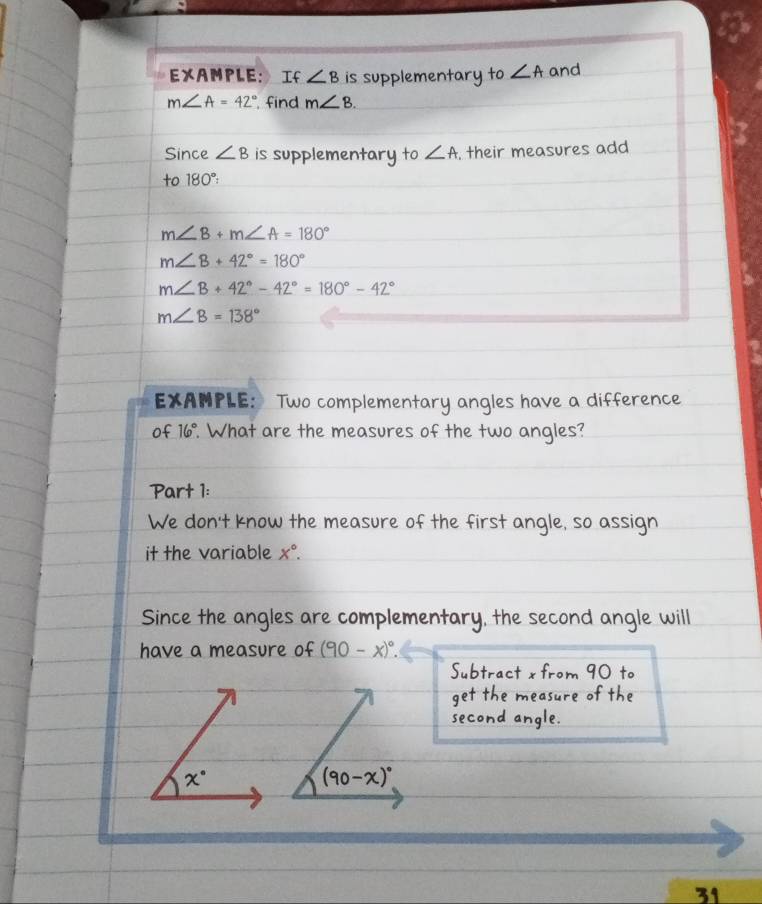 EXAMPLE: If ∠B is supplementary to ∠A and
m∠A = 42°, find m∠B.
Since ∠B is supplementary to ∠A, their measures add
to 180°:
m∠B + m∠A = 180°
m∠B + 42° = 180°
m∠B + 42° – 42° = 180° – 42°
m∠B = 138°
EXAMPLE: Two complementary angles have a difference
of 16°. What are the measures of the two angles?
Part 1:
We don't know the measure of the first angle, so assign
it the variable x°.
Since the angles are complementary, the second angle will
have a measure of (90 – x)°.
Subtract x from 90 to
get the measure of the
second angle.
x°
(90–x)°
31